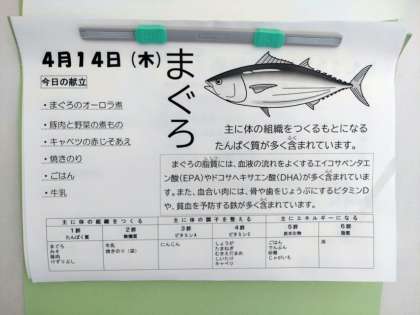 4月14日(木)
まぐろ
今日の献立
・まぐろのオーロラ煮
・豚肉と野菜の煮もの
・キャベツの赤じそあえ
・焼きのり
・ごはん
・牛乳
主に体の組織をつくるもとになる
たんぱく質が多く含まれています。
まぐろの脂質には、血液の流れをよくするエイコサペンタエ
ン酸(EPA)やドコサヘキサエン酸(DHA)が多く含まれていま
す。また、血合い肉には、骨や歯をじょうぶにするビタミンD
や、貧血を予防する鉄が多く含まれています。
主に体の組織をつくる 主に体の調子を整える 主にエネルギーになる
1群 2群 3群 4群 5群 6群
たんぱく質 無機質 ビタミンA ビタミンC 炭水化物 脂質
まぐろ 牛乳 にんじん しょうが ごはん 油
みそ 焼きのり(袋) たまねぎ でんぷん
豚肉 むきえだまめ 砂糖
けずりぶし しいたけ じゃがいも
キャベツ